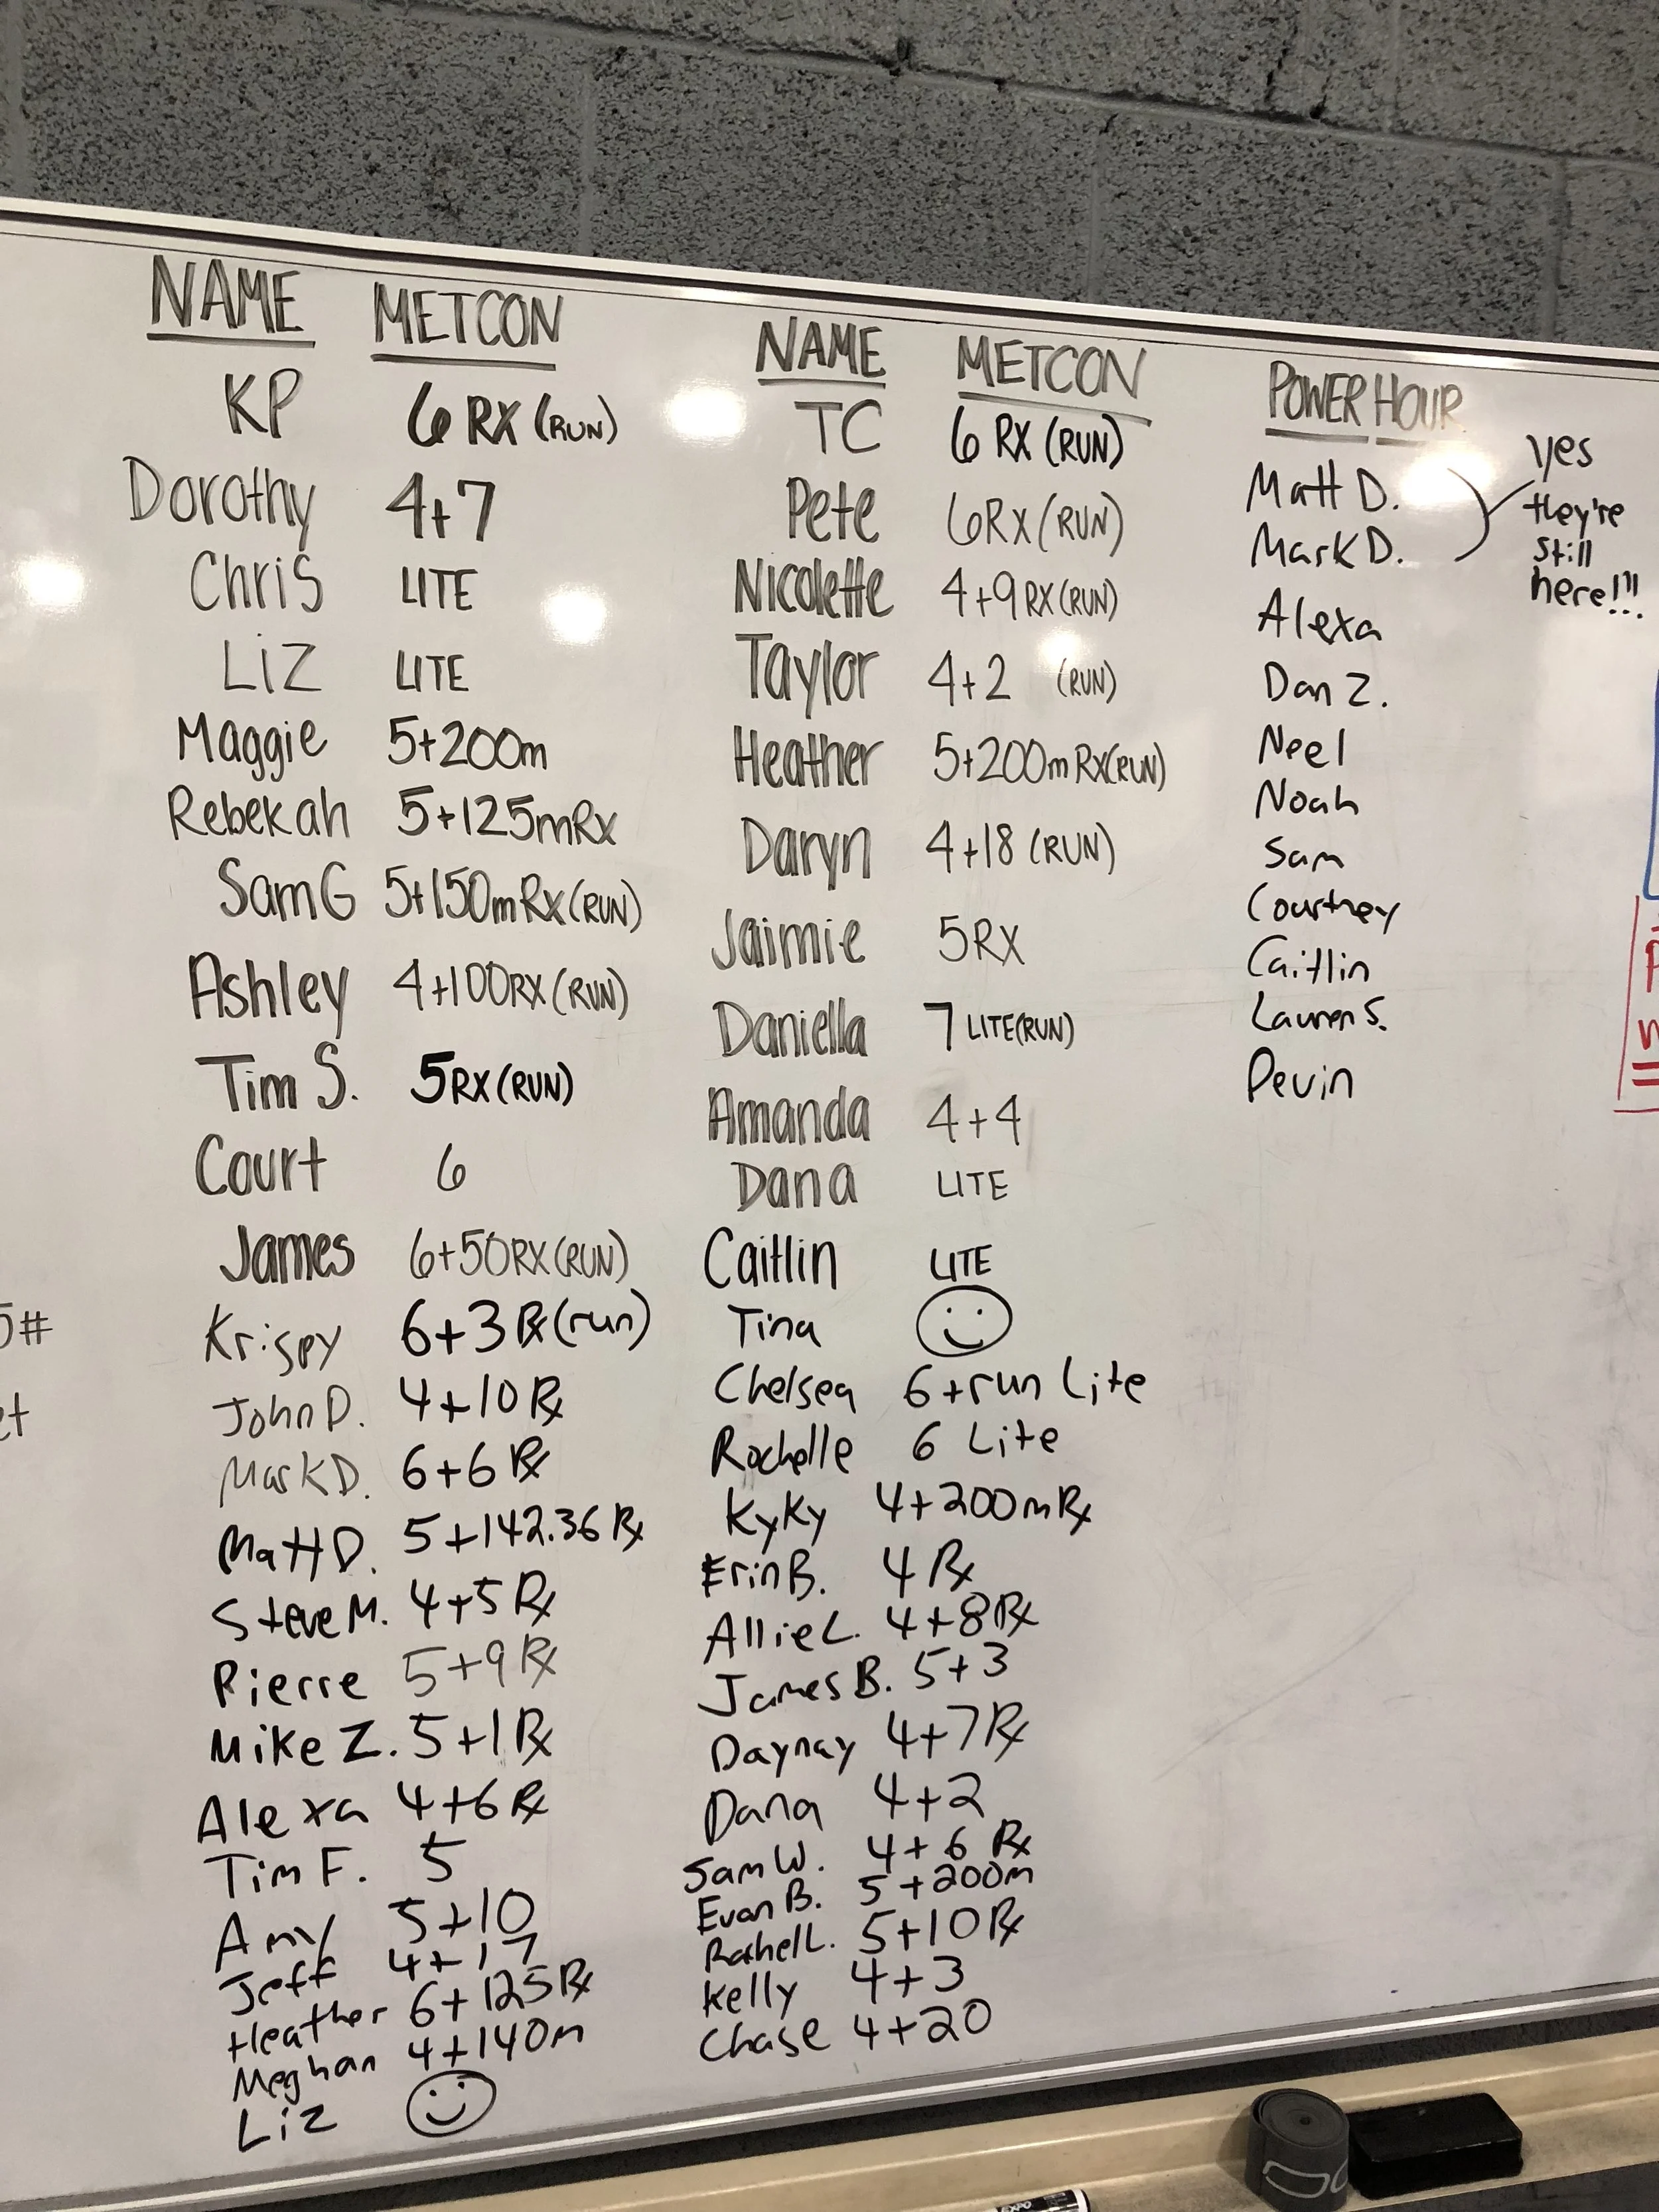 NAME METCON
KP 6 RX (RUN)
Dorothy 4+7
Chris LITE
Liz LITE
Maggie 5+200m
Rebekah 5+125mRx
Sam G 5+150mRx(RUN)
Ashley 4+100RX(RUN)
Tim S. 5RX(RUN)
Court 6
James 6+50RX(RUN)
Krispy 6+3 ℞(run)
John D. 4+10 ℞
Mark D. 6+6 ℞
Matt D. 5+142.36 ℞
Steve M. 4+5 ℞
Pierre 5+9 ℞
Mike Z. 5+1 ℞
Alexa 4+6 ℞
Tim F. 5
Amy 5+10
Jeff 4+17
Heather 6+125 ℞
Meghan 4+140m
Liz
NAME METCON
TC 6 RX (RUN)
Pete 6RX(RUN)
Nicolette 4+9 RX(RUN)
Taylor 4+2 (RUN)
Heather 5+200m Rx(RUN)
Daryn 4+18 (RUN)
Jaimie 5RX
Daniella 7 LITE(RUN)
Amanda 4+4
Dana LITE
Caitlin LITE
Tina
Chelsea 6+run Lite
Rochelle 6 Lite
KyKy 4+200m ℞
Erin B. 4 ℞
Allie L. 4+8 ℞
James B. 5+3
Daynay 4+7 ℞
Dana 4+2
Sam W. 4+6 ℞
Evan B. 5+200m
Rachel L. 5+10 ℞
Kelly 4+3
Chase 4+20
POWER HOUR
Matt D.
Mark D.
Alexa
Dan Z.
Neel
Noah
Sam
Courtney
Caitlin
Lauren S.
Devin
yes
they're
still
here!!!
5#
et
EXPO